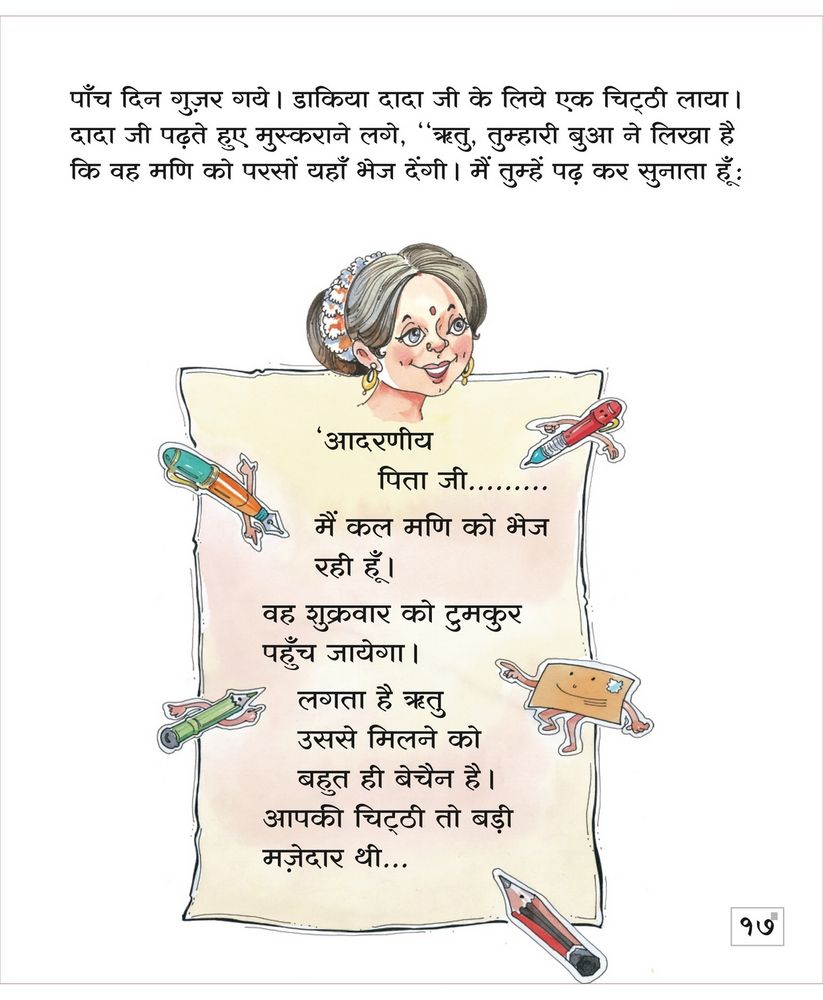 पाँच दिन गुज़र गये। डाकिया दादा जी के लिये एक चिट्ठी लाया।
दादा जी पढ़ते हुए मुस्कराने लगे, “ऋतु, तुम्हारी बुआ ने लिखा है
कि वह मणि को परसों यहाँ भेज देंगी। मैं तुम्हें पढ़ कर सुनाता हूँ:
‘आदरणीय
पिता जी.........
मैं कल मणि को भेज
रही हूँ।
वह शुक्रवार को टुमकुर
पहुँच जायेगा।
लगता है ऋतु
उससे मिलने को
बहुत ही बेचैन है।
आपकी चिट्ठी तो बड़ी
मज़ेदार थी...
१७